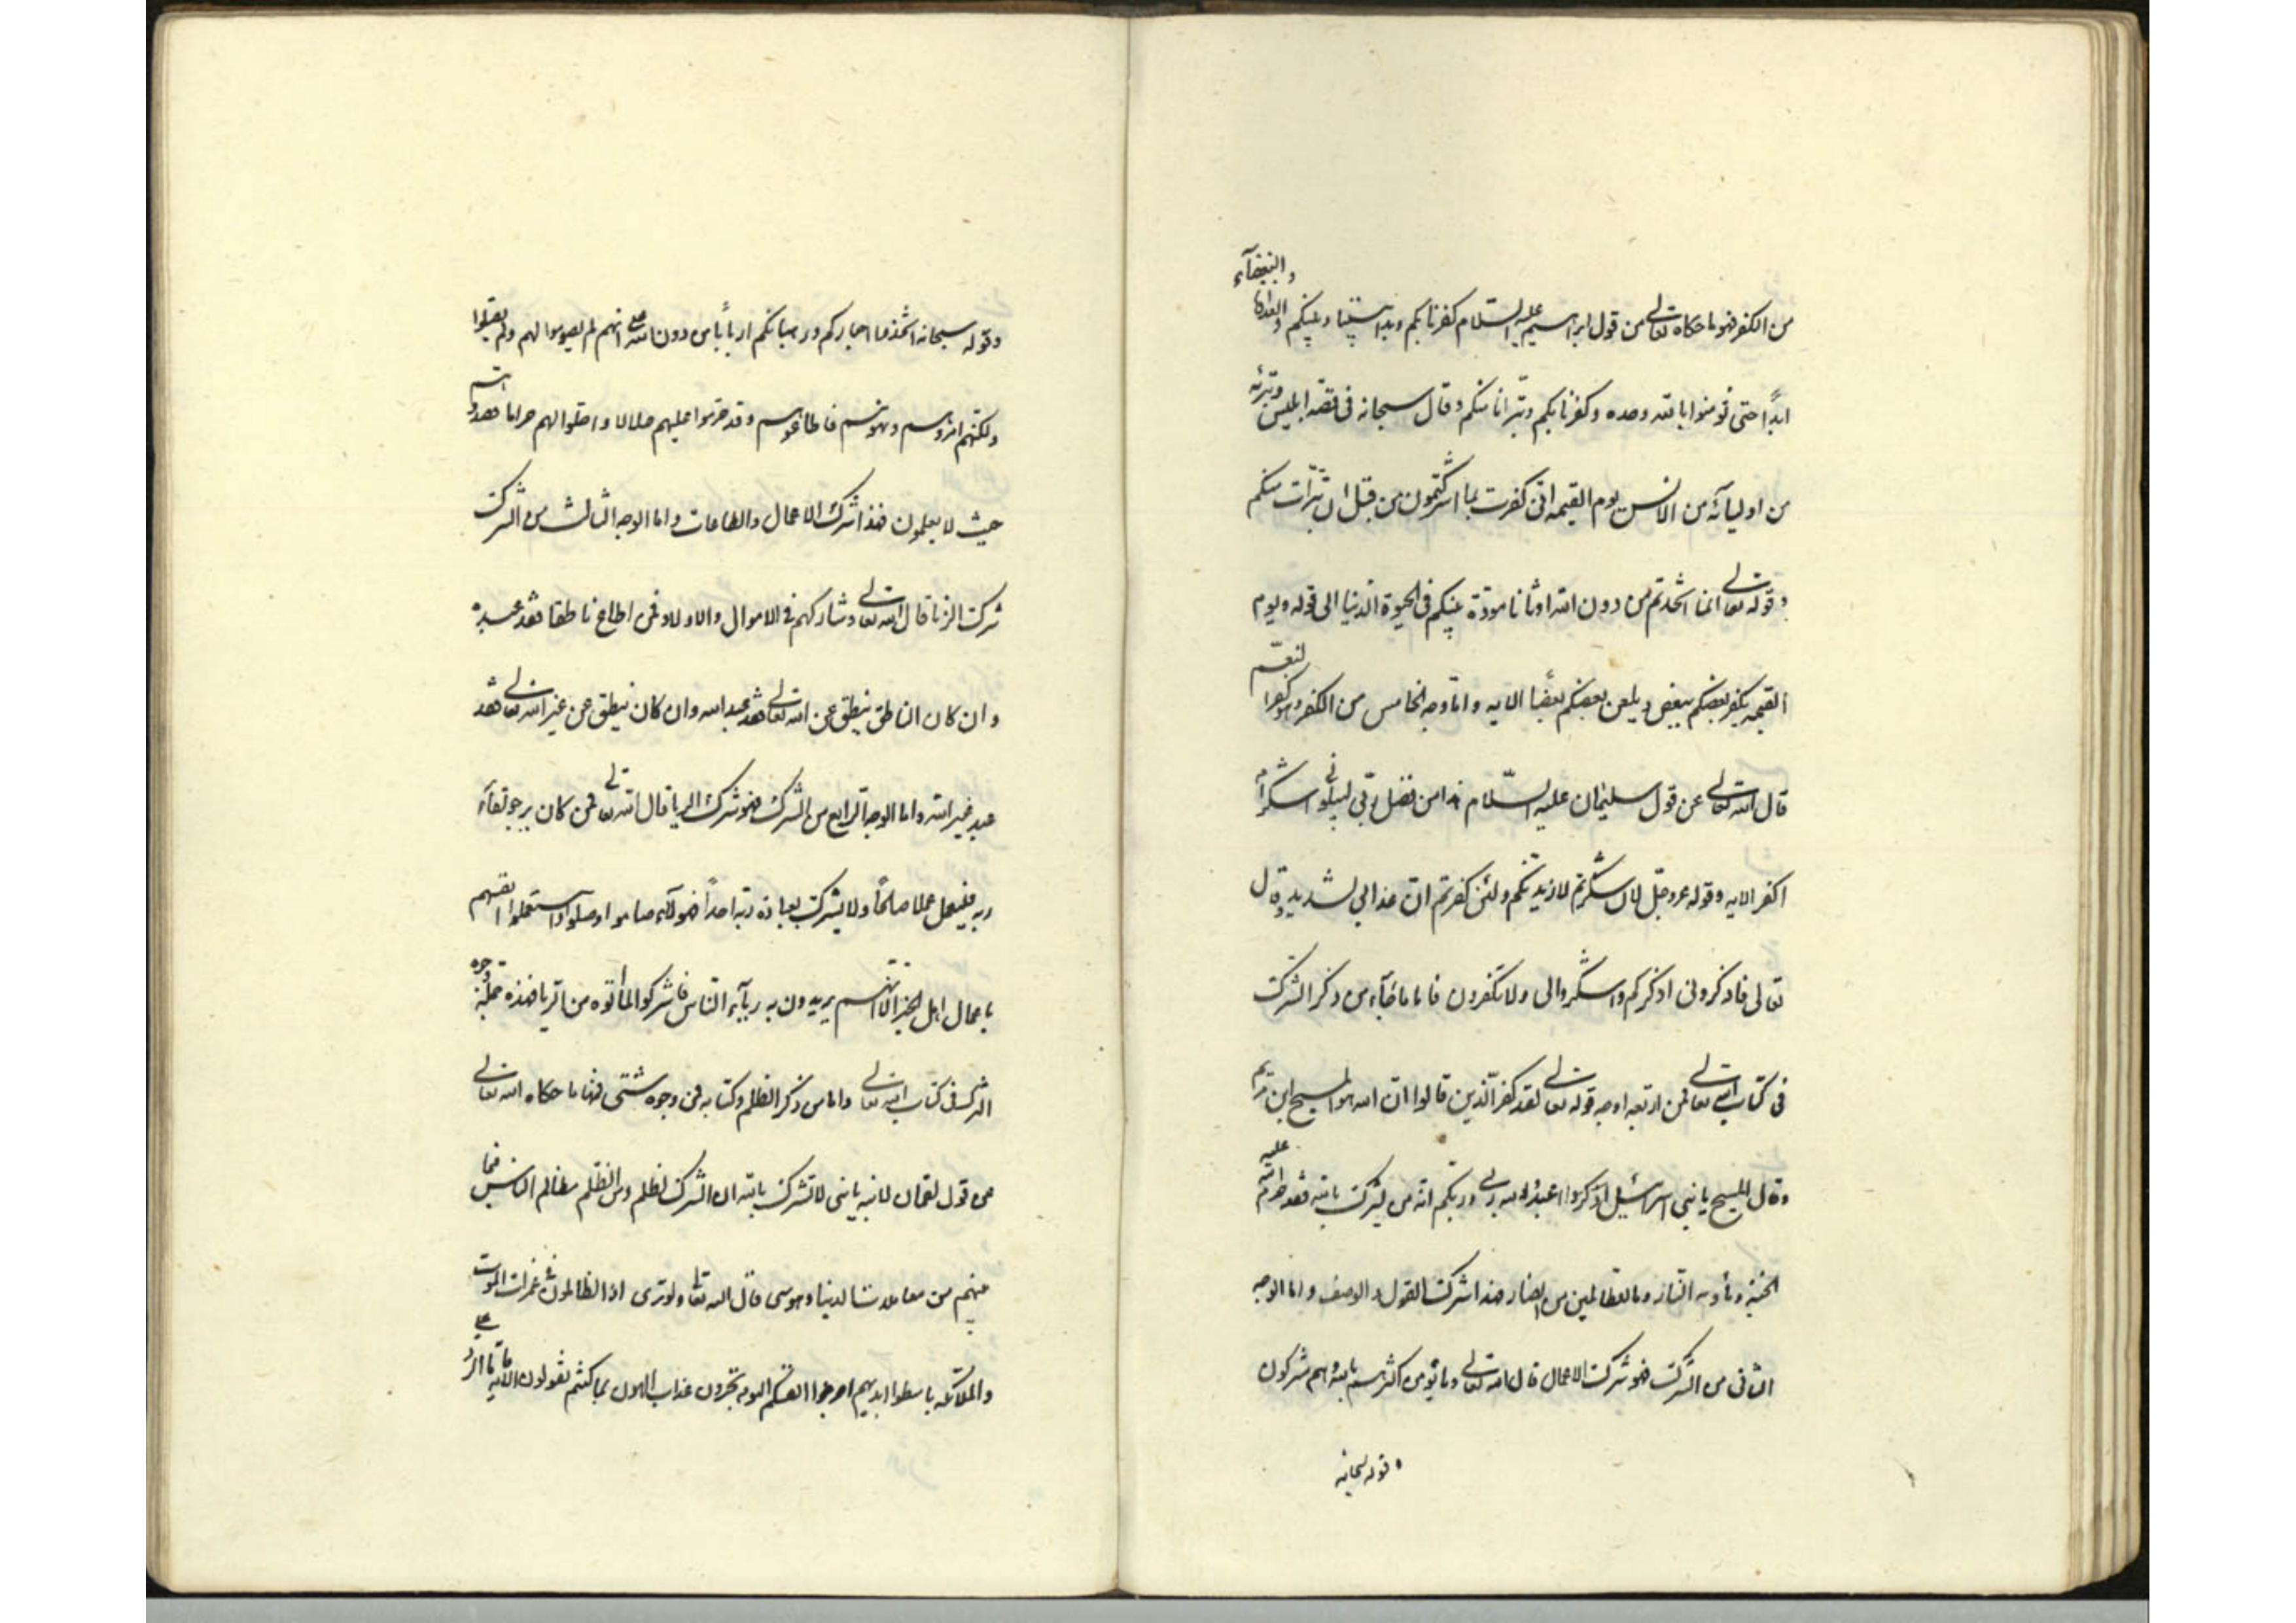 من الكفر فهو ما حكاه تعالى من قول ابراهيم عليه السلام كفرنا بكم وبدا بيننا وبينكم العداوة والبغضآء
ابدًا حتى تؤمنوا بالله وحده وكفرنا بكم وتبرانا منكم وقال سبحانه فى قصة ابليس وتبرئه
من اوليائه من الانس يوم القيمه انى كفرت بما اشركتمون من قبل اى تبرأت منكم
وقوله تعالى انما اتخذتم من دون الله اوثانا مودّة بينكم فى الحيوة الدنيا الى قوله ويوم
القيمه يكفر بعضكم ببعض ويلعن بعضكم بعضا الايه واما وجه الخامس من الكفر وهو كفر النعم
قال الله تعالى عن قول سليمان عليه السلام هذا من فضل ربى ليبلونى ءاشكر ام
اكفر الايه وقوله عز وجل لان شكرتم لازيدنكم ولئن كفرتم ان عذابى لشديد وقال
تعالى فاذكرونى اذكركم واشكروا لى ولا تكفرون فاما ما جآء من ذكر الشرك
فى كتاب الله تعالى فمن اربعه اوجه قوله تعالى لقد كفر الذين قالوا ان الله هو المسيح ابن مريم
وقال المسيح يا بنى اسرائيل اعبدوا الله ربى وربكم انه من يشرك بالله فقد حرم الله عليه
الجنة ومأويه النار وما للظالمين من انصار فهذا شرك القول والوصف واما الوجه
الثانى من الشرك فهو شرك الاعمال قال الله تعالى وما يؤمن اكثرهم بالله وهم مشركون
وقوله سبحانه
وقوله سبحانه اتخذوا احباركم ورهبانكم اربابًا من دون الله انهم لم يصوموا لهم ولم يصلوا
ولكنهم امروهم ونهوهم فاطاعوهم وقد حرموا عليهم حلالا واحلوا لهم حراما فعبدوهم
حيث لا يعلمون فهذا شرك الاعمال والطاعات واما الوجه الثالث من الشرك
شرك الزنا قال الله تعالى وشاركهم فى الاموال والاولاد فمن اطاع ناطقا فقد عبده
وان كان الناطق ينطق عن الله تعالى فقد عبد الله وان كان ينطق عن غير الله تعالى فقد
عبد غير الله واما الوجه الرابع من الشرك فهو شرك الريا قال الله تعالى فمن كان يرجو لقاء
ربه فليعمل عملا صالحًا ولا يشرك بعبادة ربه احدًا فهولآء صاموا وصلوا واستعملوا انفسهم
باعمال اهل الخير الا انهم يريدون به ريآء الناس فاشركوا لما اتوه من الريا فهذه جملة وجوه
الشرك فى كتاب الله تعالى واما من ذكر الظلم وكتابه فمن وجوه شتى فمنها ما حكاه الله تعالى
من قول لقمان لابنه يا بنى لا تشرك بالله ان الشرك لظلم ومن الظلم مظالم الناس فيما
بينهم من معاملات الدنيا وهو شتى قال الله تعالى ولو ترى اذ الظالمون فى غمرات الموت
والملائكه باسطوا ايديهم اخرجوا انفسكم اليوم تجزون عذاب الهون بما كنتم تقولون الايه فاما الرد على